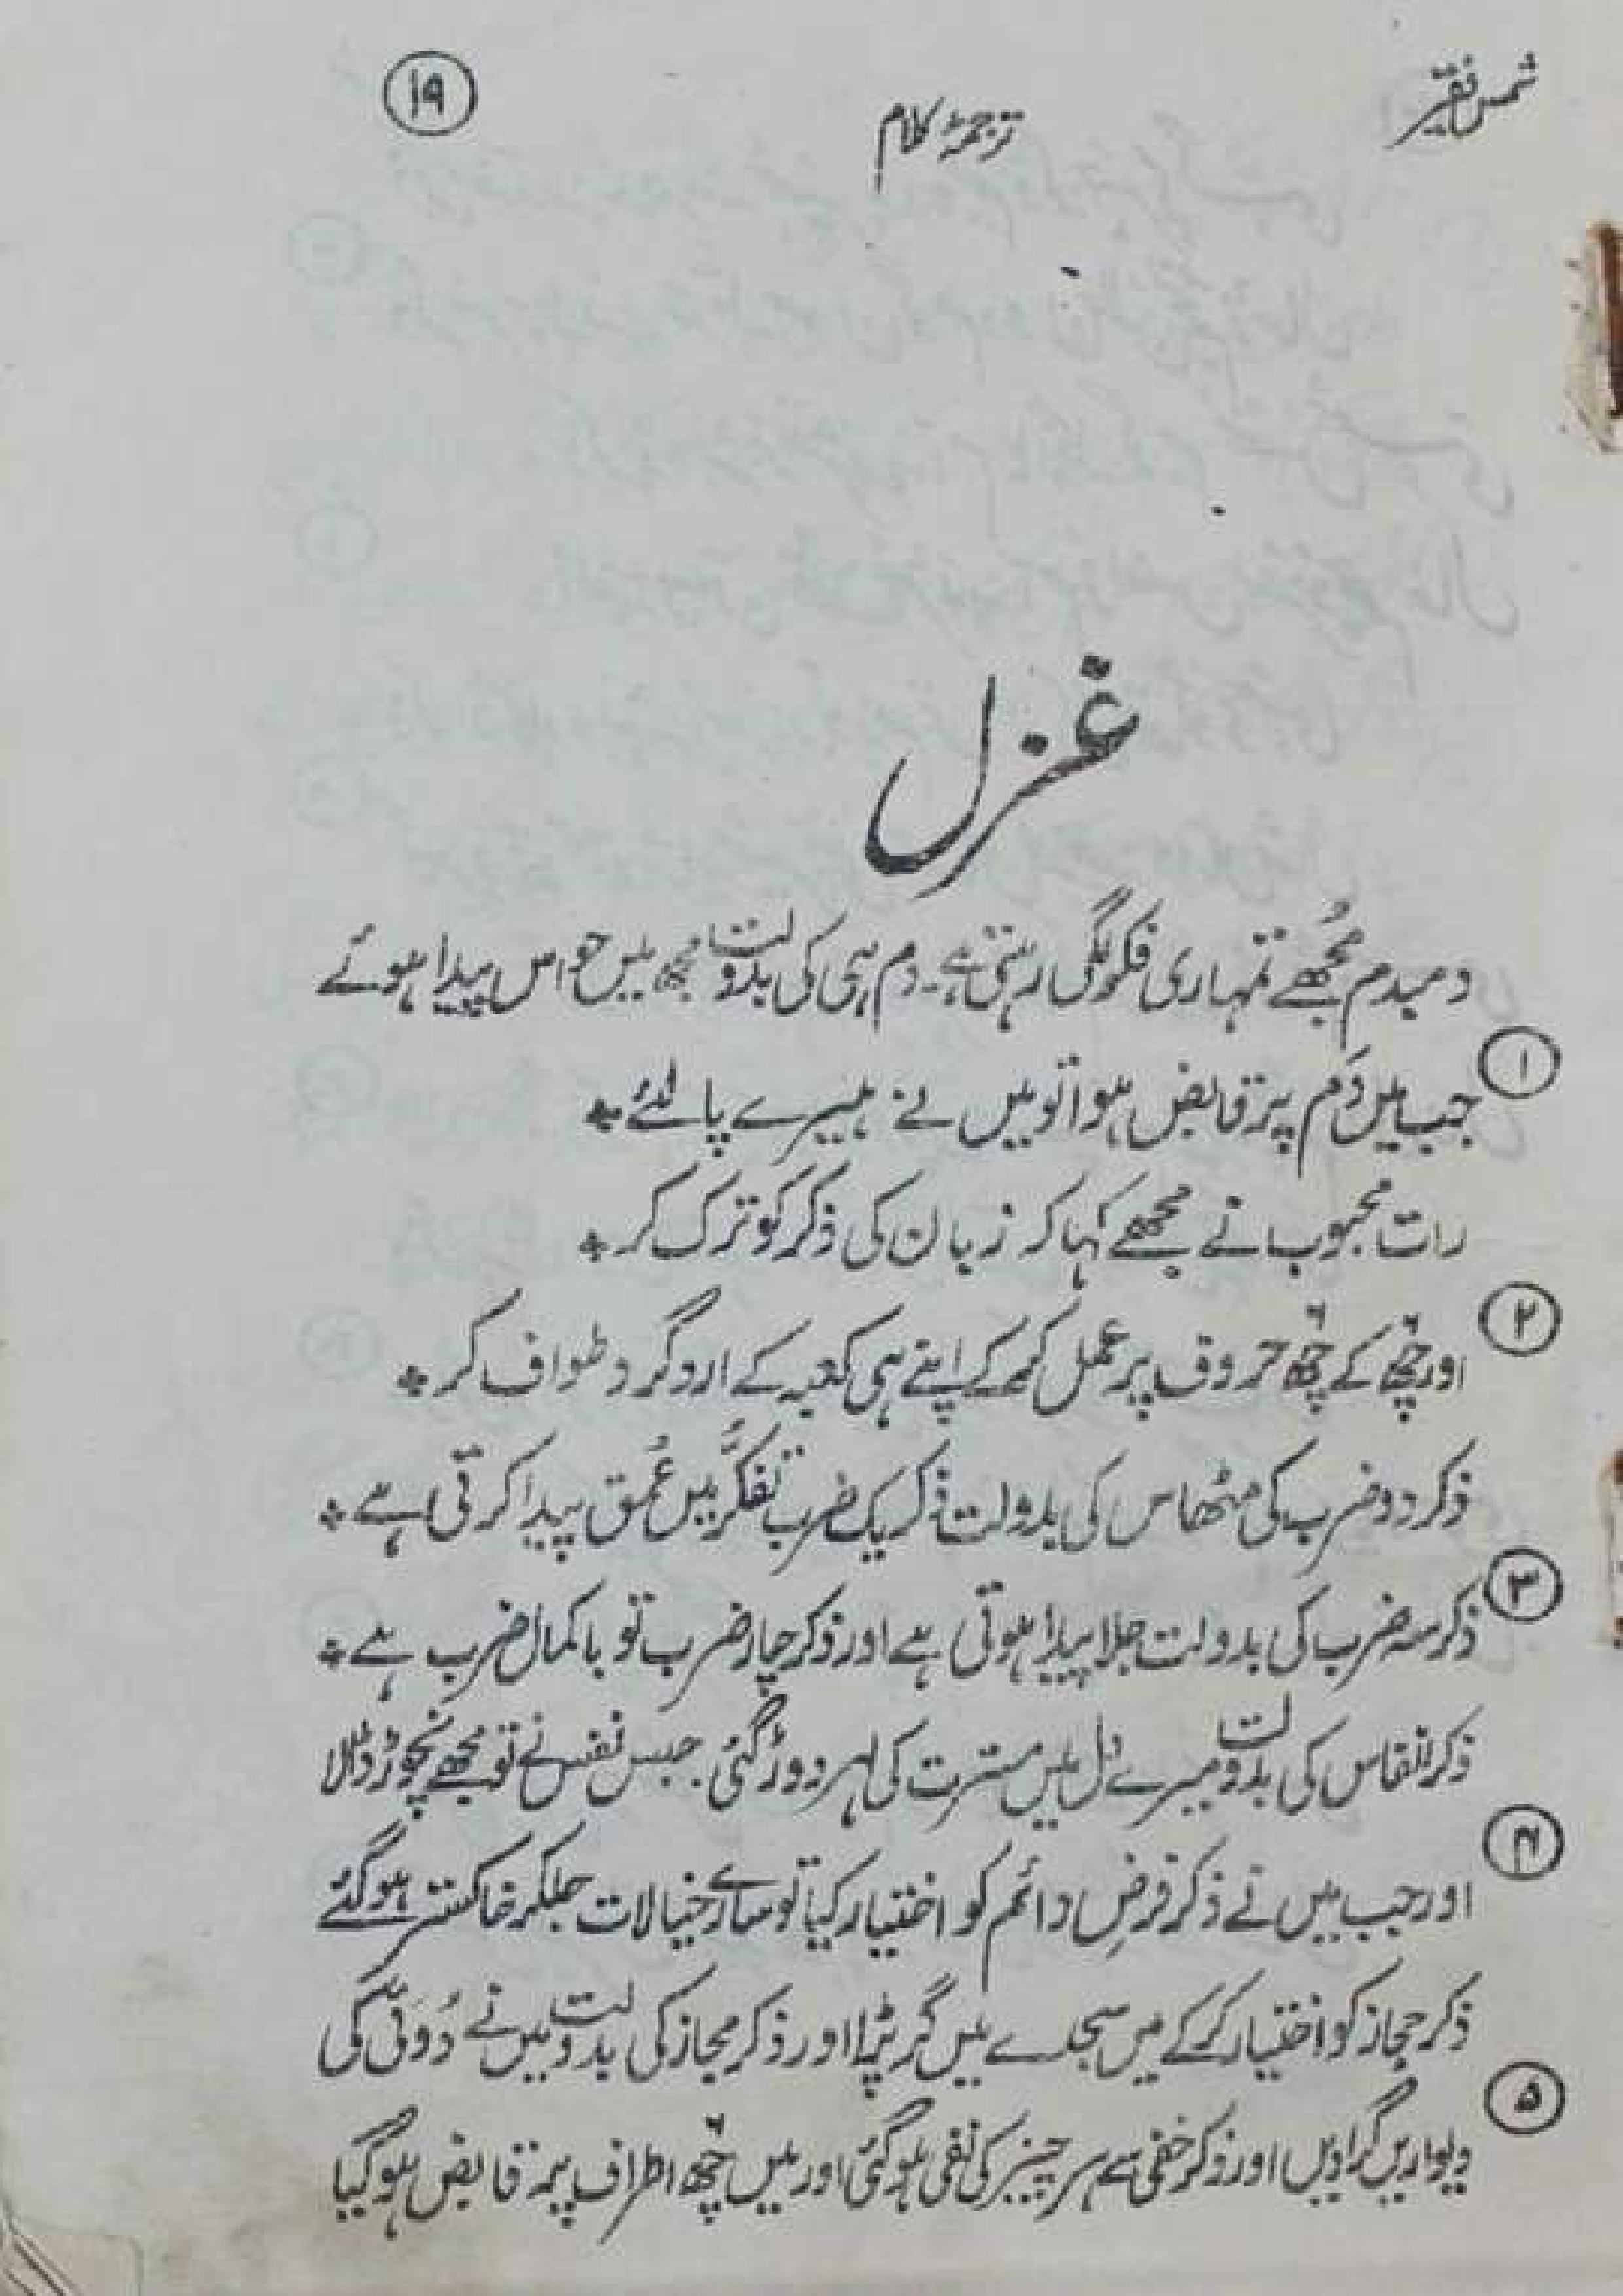 شمس فقیر
ترجمۂ کلام
۱۹
غزل
دمبدم مُجھے تمہاری فکر لگی رہتی ہے۔ دم ہی کی بدولت مجھ میں حواس پیدا ہوئے
۱
جب میں دَم پر قابض ہوا تو میں نے ہیرے پا لئے *
رات محبوب نے مجھے کہا کہ زبان کی ذکر کو ترک کر *
۲
اور چھ کے چھ حروف پر عمل کر کے اپنے ہی کعبہ کے اردگرد طواف کر *
ذکر دو ضرب کی مٹھاس کی بدولت ذکر یک ضرب تفکُّر میں عُمق پیدا کرتی ہے *
۳
ذکر سہ ضرب کی بدولت جلا پیدا ہوتی ہے اور ذکر چار ضرب تو باکمال ضرب ہے *
ذکر انفاس کی بدولت میرے دل میں مسّرت کی لہر دوڑ گئی۔ حبس نفس نے تو مجھے نچوڑ ڈالا
۴
اور جب میں نے ذکر فرضِ دائم کو اختیار کیا تو سارے خیالات جلکر خاکستر ہو گئے
ذکر حجاز کو اختیار کر کے میں سجدے میں گر پڑا اور ذکر مجاز کی بدولت میں نے دُوئی کی
۵
دیواریں گرا دیں اور ذکر خفی سے ہر چیز کی نفی ہو گئی اور میں چھ اطراف پر قابض ہو گیا